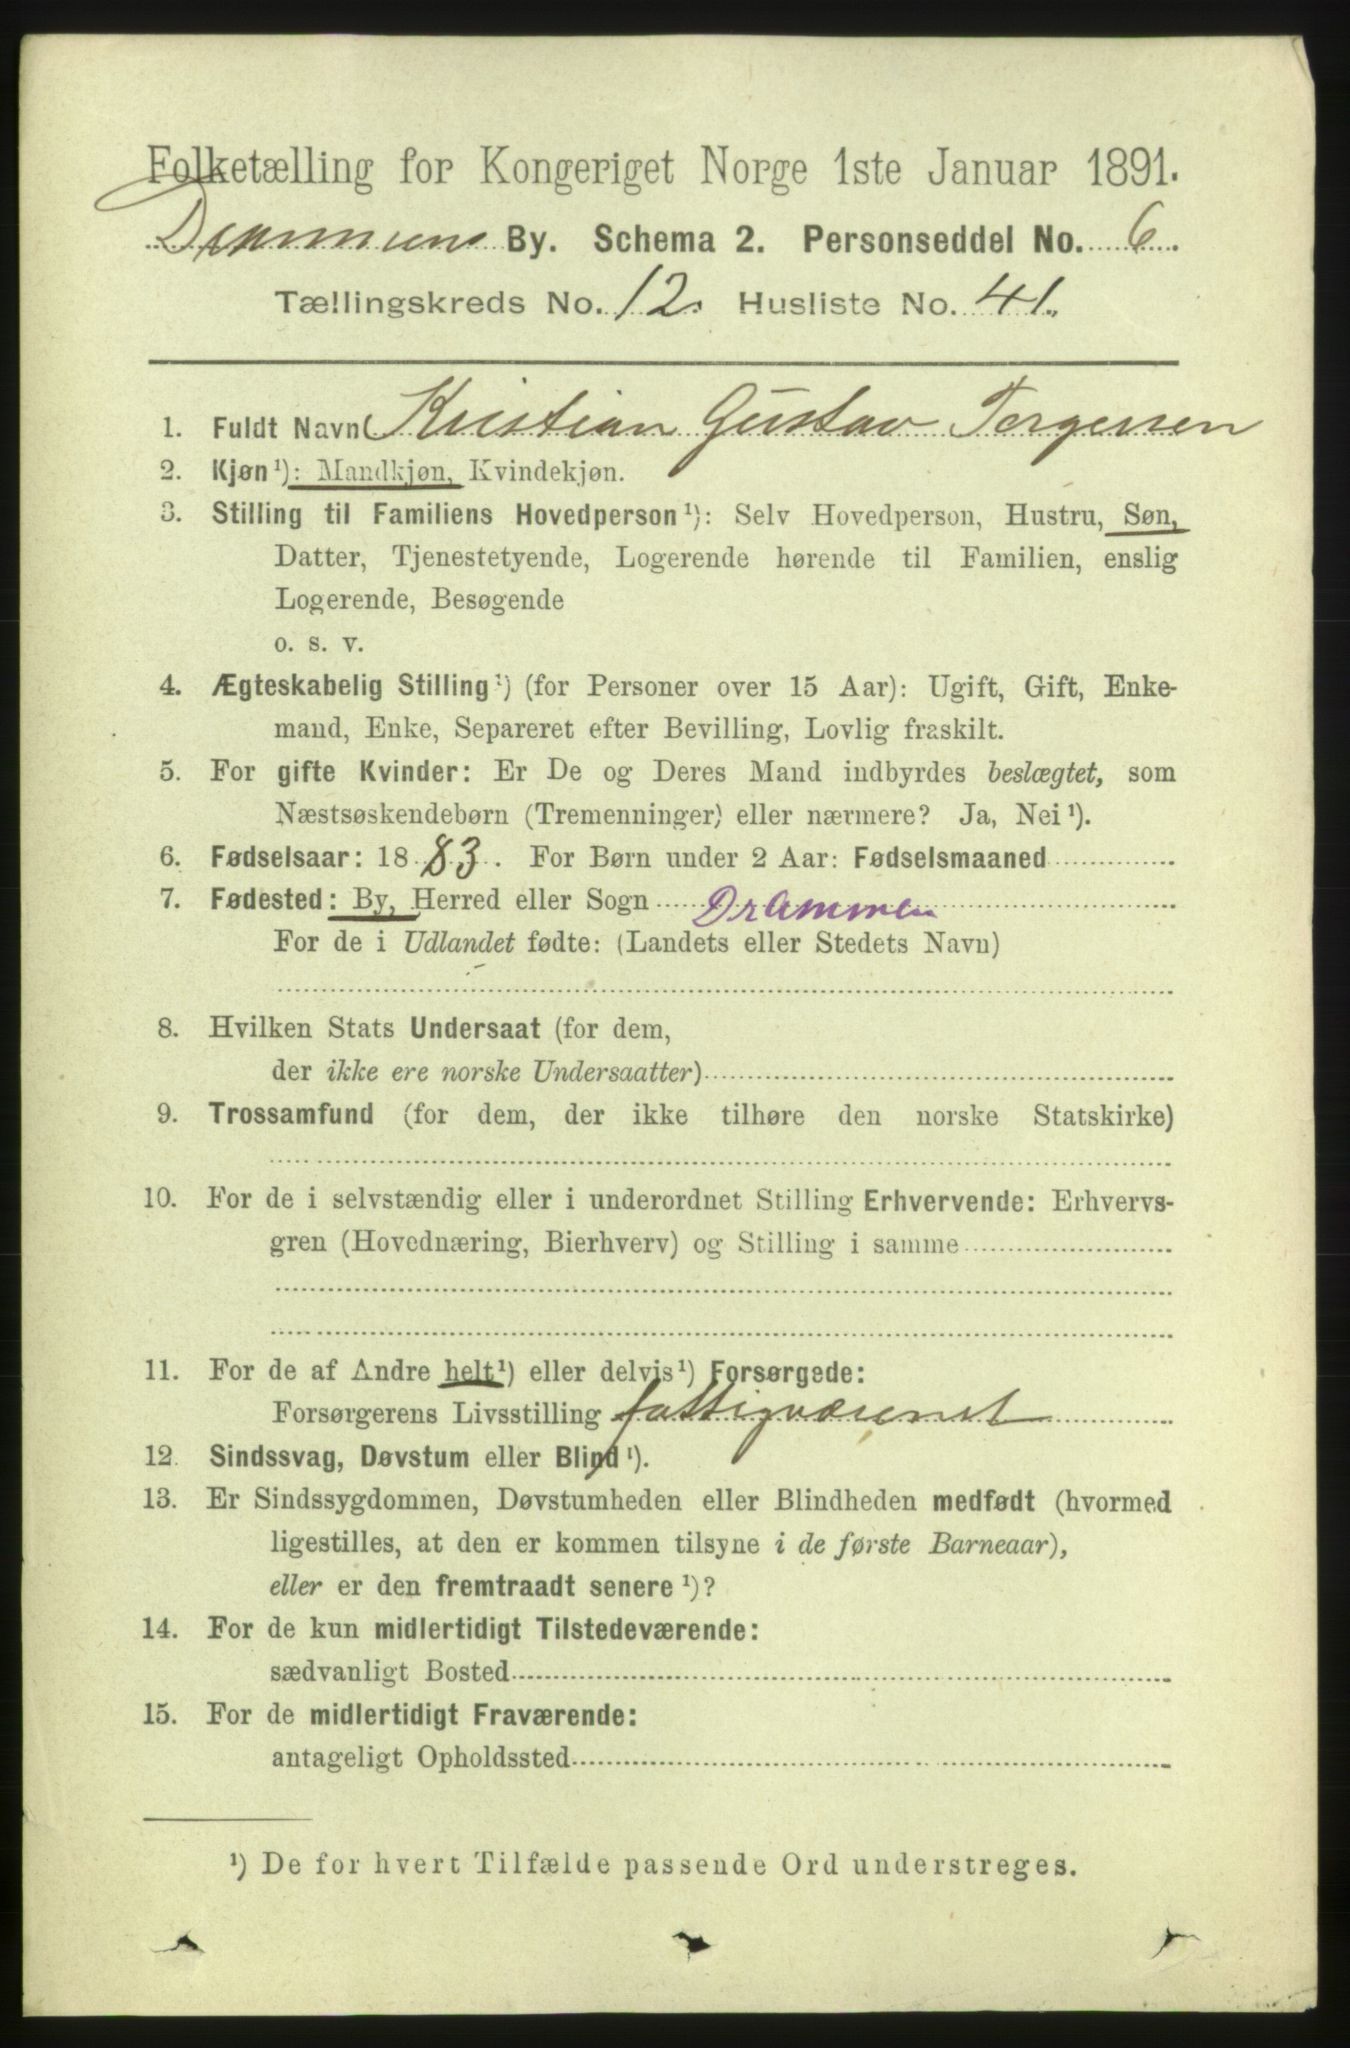 Folketælling for Kongeriget Norge 1ste Januar 1891.
Drammens By. Schema 2. Personseddel No. 6.
Tællingskreds No. 12. Husliste No. 41.
1. Fuldt Navn Kristian Gustav Torgersen
2. Kjøn¹): Mandkjøn, Kvindekjøn.
3. Stilling til Familiens Hovedperson¹): Selv Hovedperson, Hustru, Søn,
Datter, Tjenestetyende, Logerende hørende til Familien, enslig
Logerende, Besøgende
o. s. v.
4. Ægteskabelig Stilling¹) (for Personer over 15 Aar): Ugift, Gift, Enke-
mand, Enke, Separeret efter Bevilling, Lovlig fraskilt.
5. For gifte Kvinder: Er De og Deres Mand indbyrdes beslægtet, som
Næstsøskendebørn (Tremenninger) eller nærmere? Ja, Nei¹).
6. Fødselsaar: 1883. For Børn under 2 Aar: Fødselsmaaned
7. Fødested: By, Herred eller Sogn Drammen
For de i Udlandet fødte: (Landets eller Stedets Navn)
8. Hvilken Stats Undersaat (for dem,
der ikke ere norske Undersaatter)
9. Trossamfund (for dem, der ikke tilhøre den norske Statskirke)
10. For de i selvstændig eller i underordnet Stilling Erhvervende: Erhvervs-
gren (Hovednæring, Bierhverv) og Stilling i samme
11. For de af Andre helt¹) eller delvis¹) Forsørgede:
Forsørgerens Livsstilling fattigvæsenet
12. Sindssvag, Døvstum eller Blind¹).
13. Er Sindssygdommen, Døvstumheden eller Blindheden medfødt (hvormed
ligestilles, at den er kommen tilsyne i de første Barneaar),
eller er den fremtraadt senere¹)?
14. For de kun midlertidigt Tilstedeværende:
sædvanligt Bosted
15. For de midlertidigt Fraværende:
antageligt Opholdssted
¹) De for hvert Tilfælde passende Ord understreges.